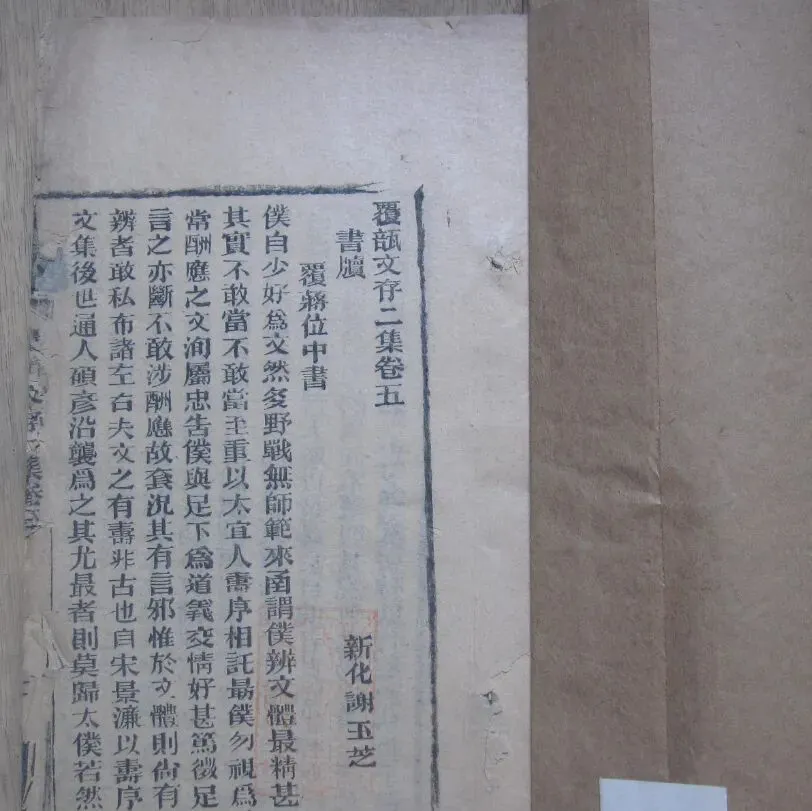 覆瓿文存二集卷五
書牘
新化謝玉芝
覆蔣位中書
僕自少好爲文然多野戰無師範來函謂僕辨文體最精甚
其實不敢當不敢當至重以太宜人壽序相託勗僕勿視爲
常酬應之文洵屬忠告僕與足下爲道義交情好甚篤微足
言之亦斷不敢涉酬應故套況其有言邪惟於文體則尙有
辨者敢私布諸左右夫文之有壽非古也自宋景濂以壽序
文集後世通人碩彦沿襲爲之其尤最者則莫歸太僕若然